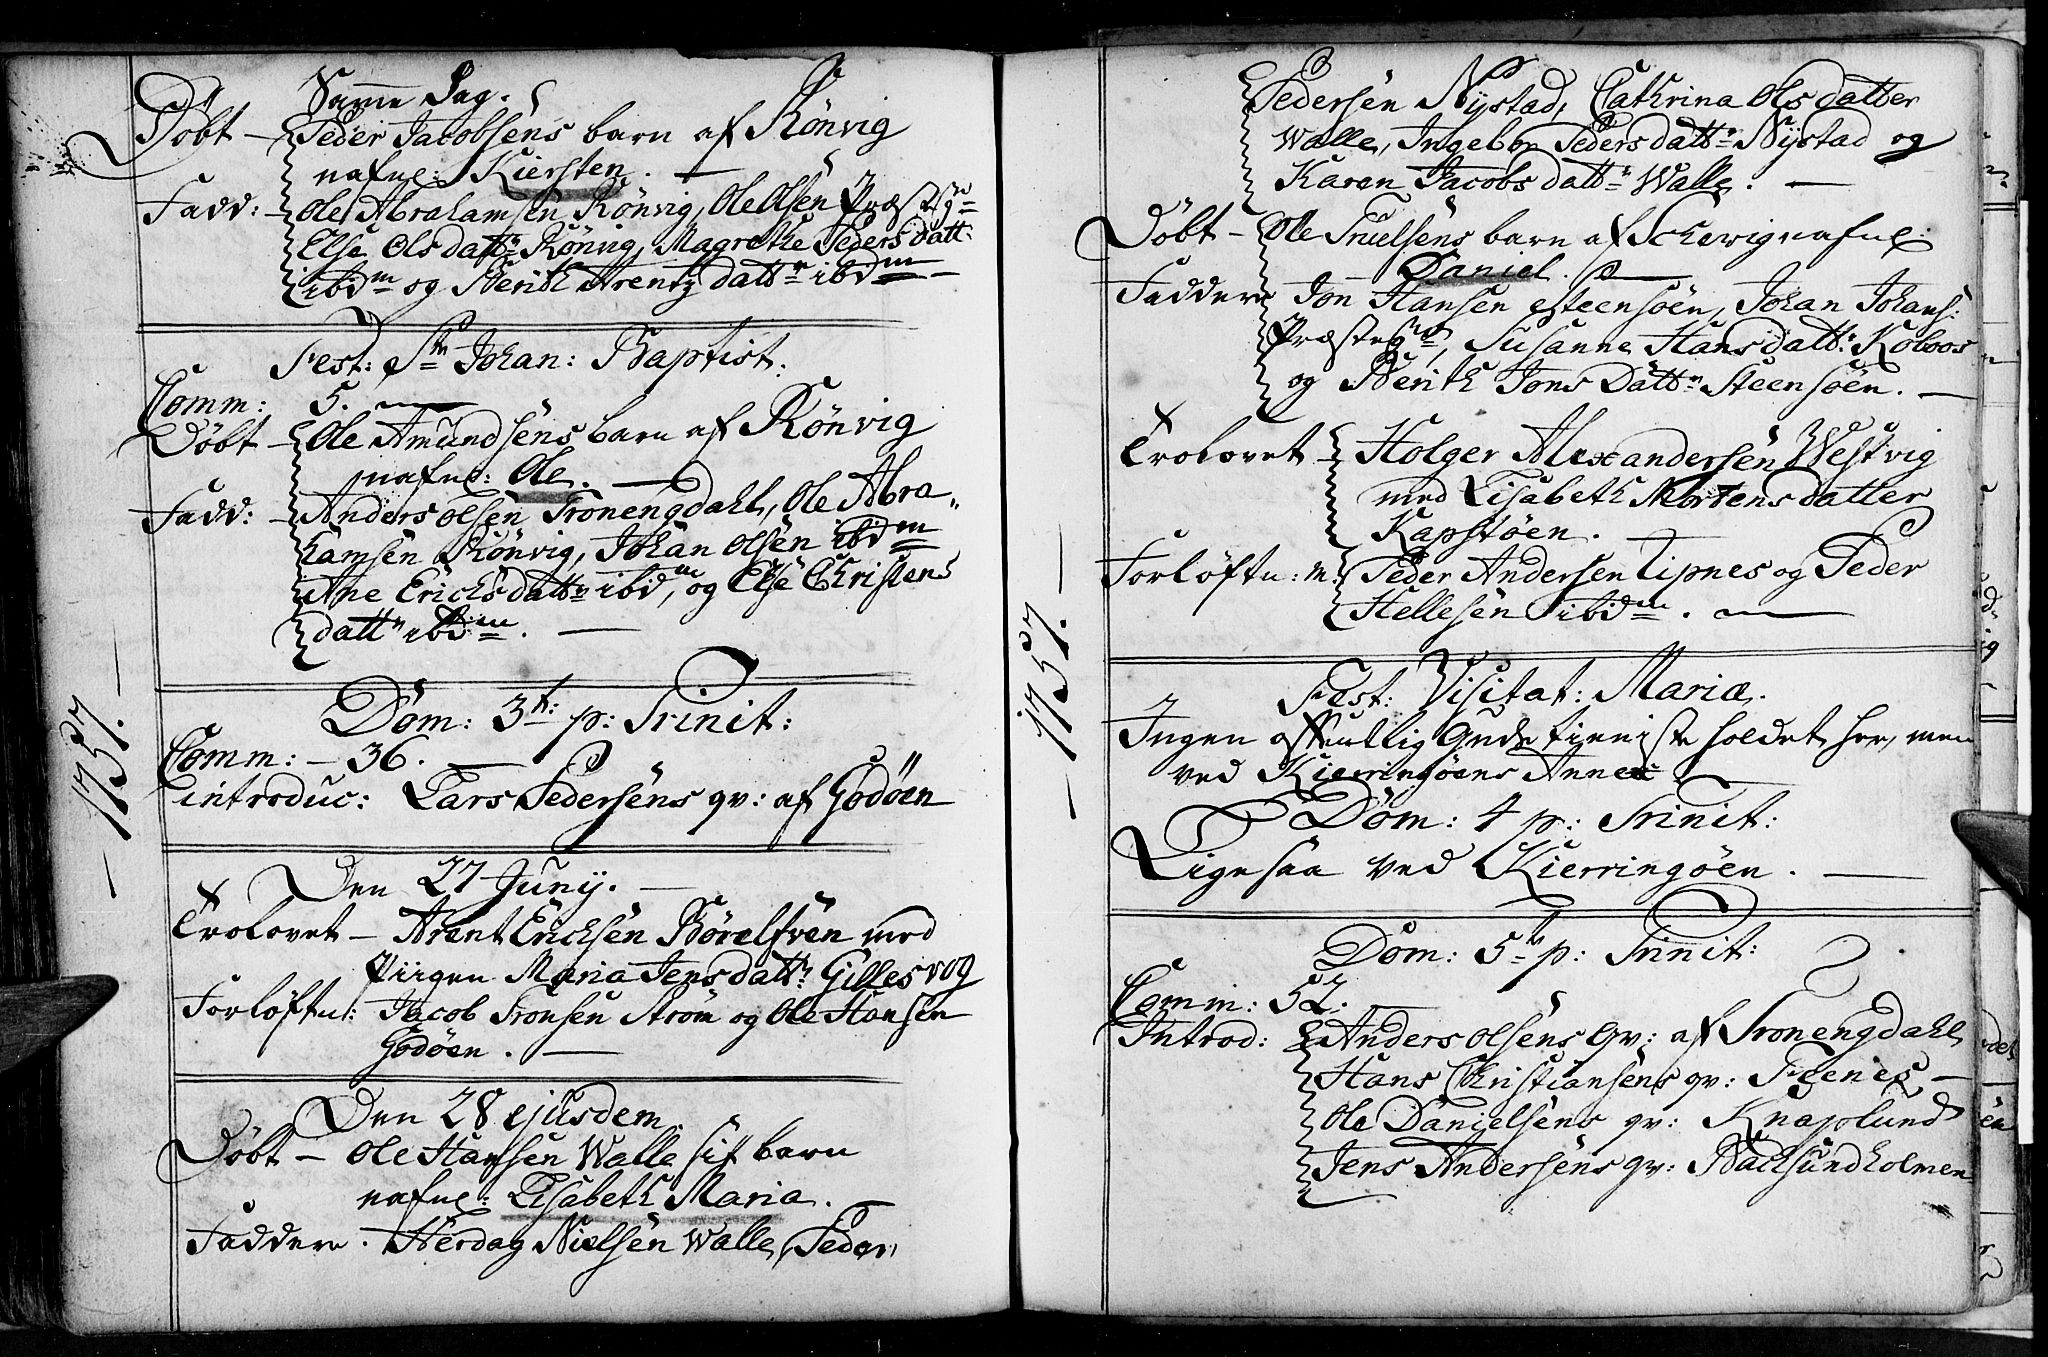 Samme Dag.
Döbt – Peder Jacobsens barn af Rönvig
nafnl: Kiersten. –
Fadd: – Ole Abrahamsen Rönvig, Ole Olsen Præstg:
Else Olsdattr Rönvig, Magrethe Pedersdatt:
ibidm og Berith Arentzdattr ibidm –
Fest: Stn Johan: Baptist:
Comm: 5. –
Döbt – Ole Amundsens barn af Rönvig
nafnl: Ole. –
Fadd: – Anders Olsen Tronengdahl, Ole Abra„
hamsen Rönvig, Johan Olsen ibidm
Ane Ericksdattr ibidm, og Else Christens
dattr ibidm. –
– 1757. –
Dom: 3t: p: Trinit:
Comm: – 36.
introduc: Lars Pedersens qv: af Godöen
Den 27 Junij. –
Trolovet – Arent Ericksen Börelfven med
Piigen Maria Jensdattr: Gillesvog
Forlöftn: Jacob Tronsen Ström og Ole Hansen
Godöen. –
Den 28 ejusdem.
Döbt – Ole Hansen Walle sit barn
nafnl: Lisabeth Maria.
Faddere. Herdag Nielsen Walle, Peder
Pedersen Nystad, Cathrina Olsdatter
Walle, Ingebor Pedersdattr Nystad og
Karen Jacobsdattr Walle. –
Döbt – Ole Truelsens barn af Schevig nafnl:
Daniel. –
Faddere Jon Hansen Steensöen, Johan Johans:
Præsteg:, Susanne Hansdattr: Koboos
og Berith Jonsdattr Steensöen. –
Trolovet – Holger Alexandersen Westvig
med Lisabeth Mortensdatter
Kapstöen. –
Forlöftn: m: Peder Andersen Lipnes og Peder
Hellesen ibidm. –
– 1757. –
Fest: Visitat: Mariæ.
Ingen offentlig Gudstienniste holdet her, men
ved Kierringöens Annex
Dom: 4 p: Trinit:
Ligesaa ved Kierringöen. –
Dom: 5te p: Trinit:
Comm: 52.
Introd: Anders Olsens qv: af Tronengdahl,
Hans Christiansens qv: –
Ole Danielsens qv: Knaplund
Jens Andersens qv: Backsundholmen